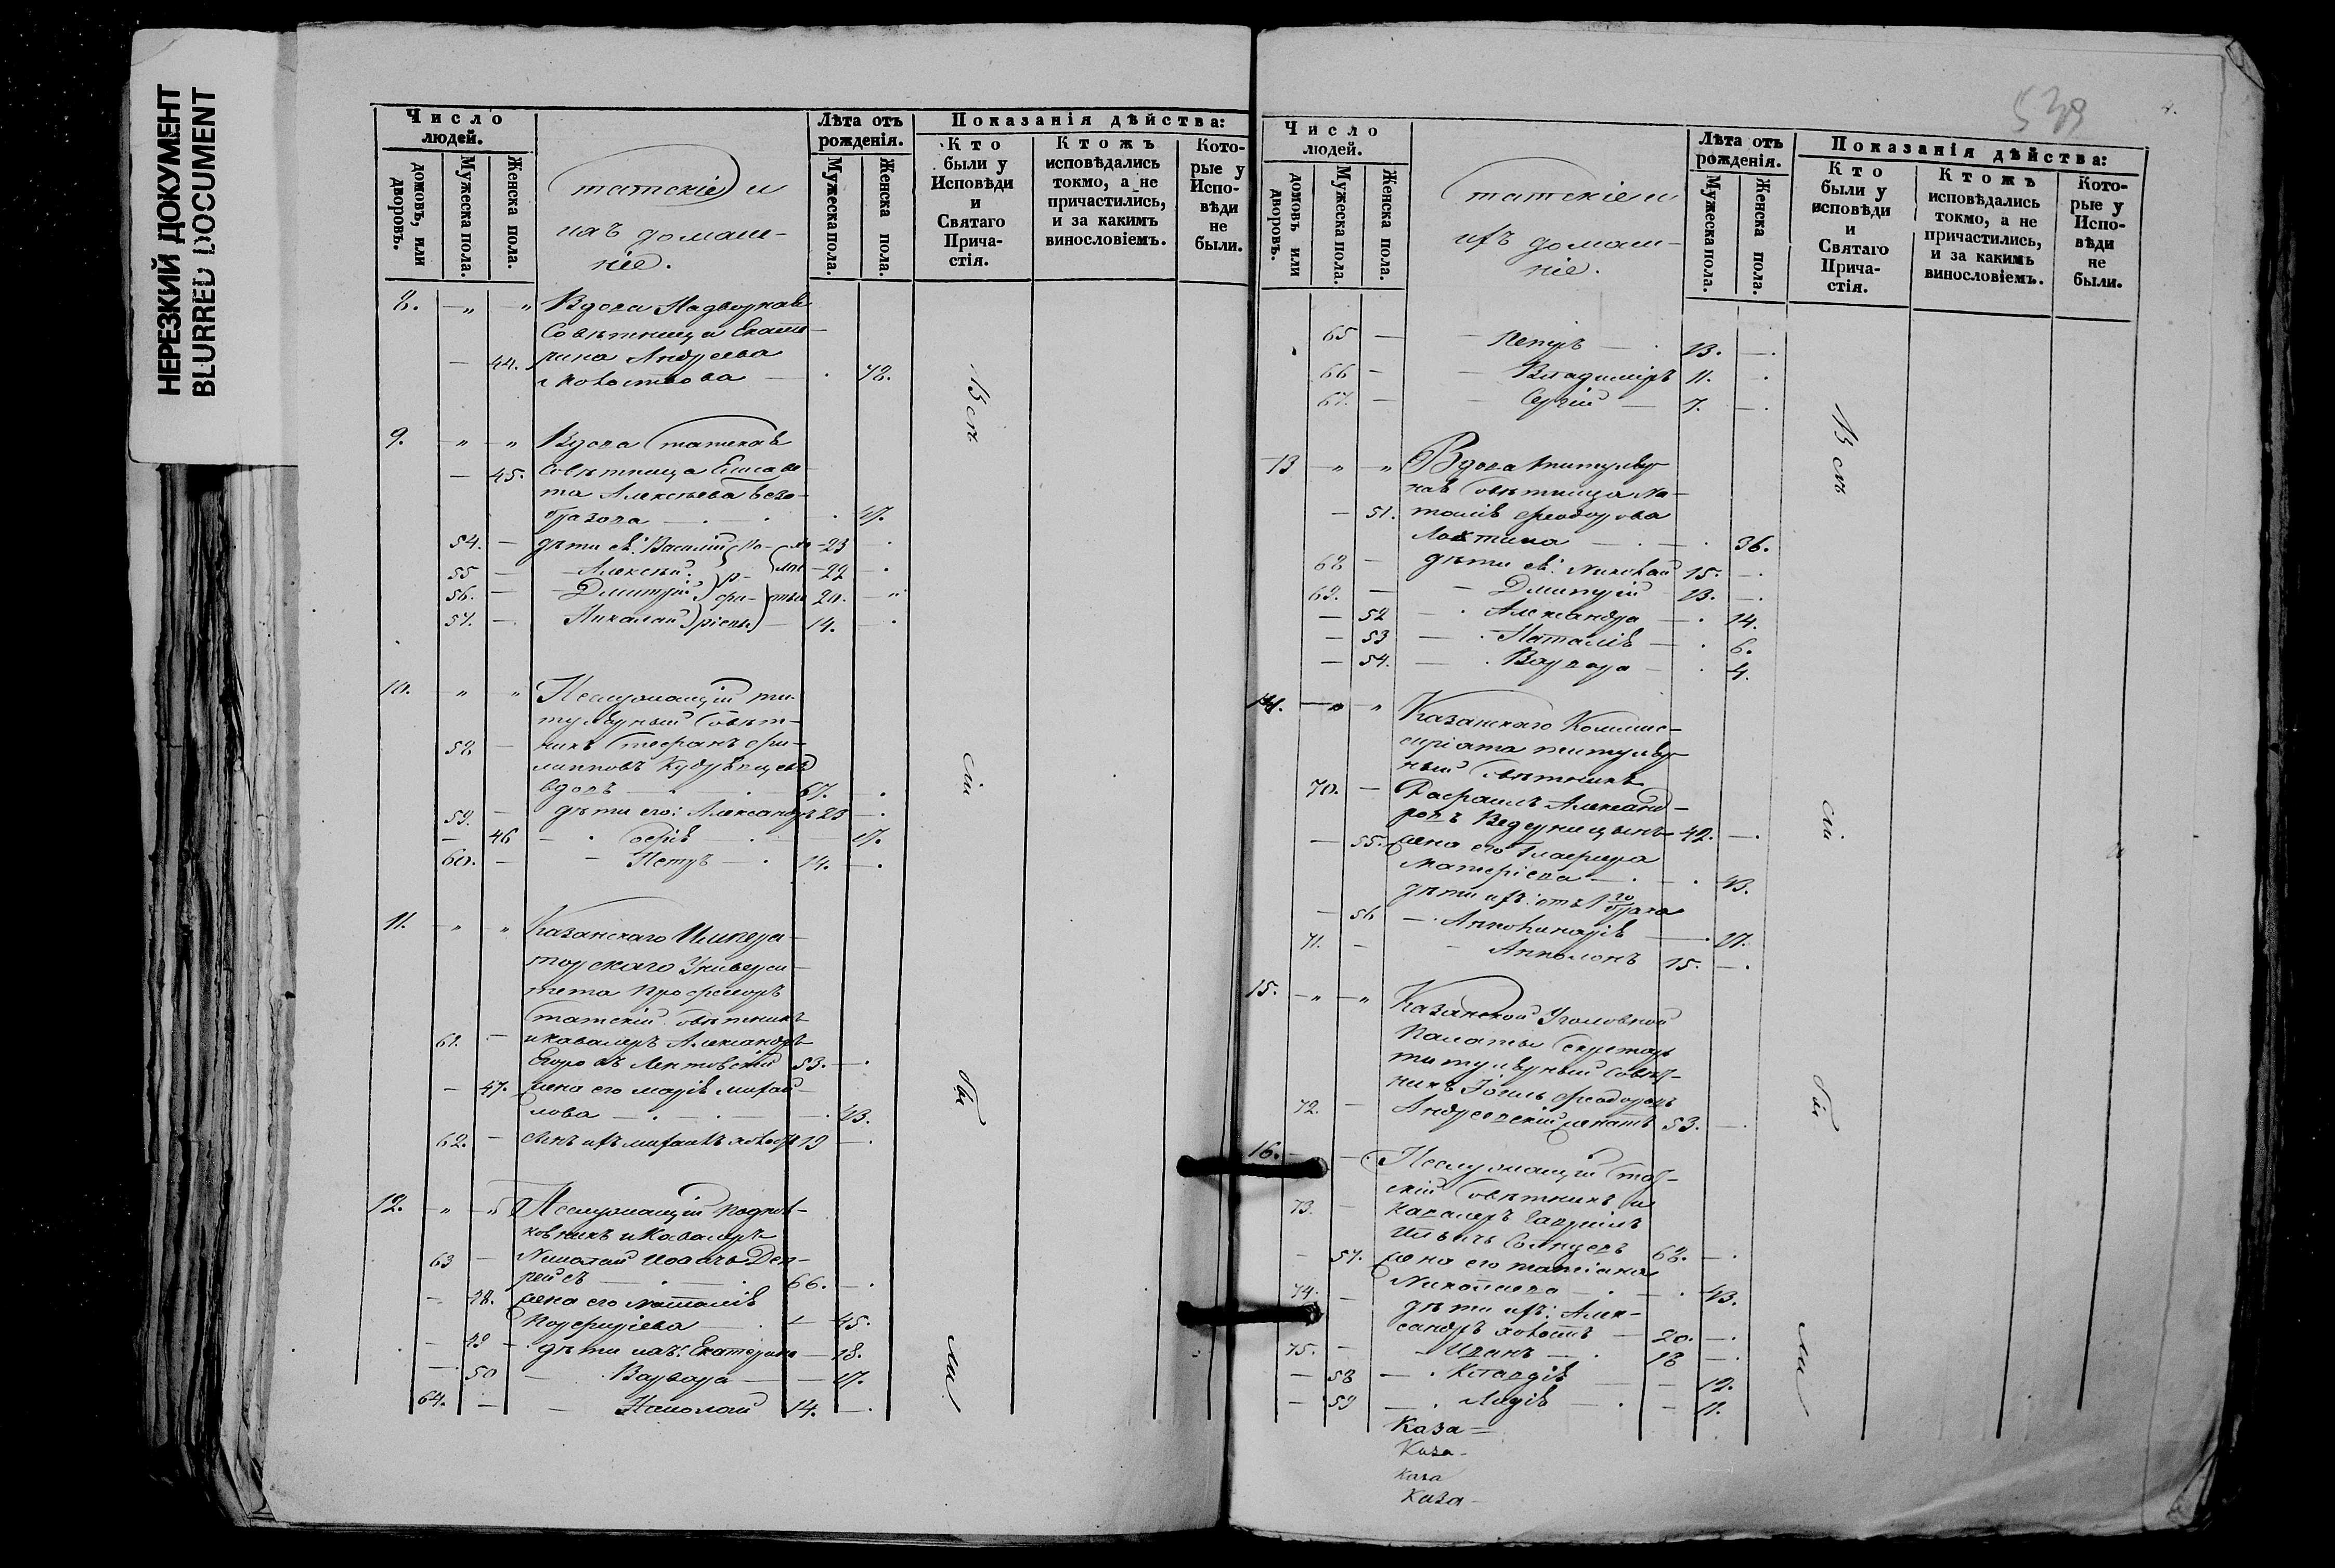 НЕРЕЗКИЙ ДОКУМЕНТ
BLURRED DOCUMENT
Число людей.
домовъ, или дворовъ.
Мужеска пола.
Женска пола.
татскіе и
ихъ домаш-
ніе.
Лѣта отъ рожденія.
Мужеска пола.
Женска пола.
Показанія дѣйства:
Кто были у Исповѣди и Святаго Прича-стія.
Ктожъ исповѣдались токмо, а не причастились, и за какимъ винословіемъ.
Кото-рые у Испо-вѣди не были.
8. — „ — „ Вдова Надворная
Совѣтница Екате-
— 44. рина Андреева
— . 72.
9. — „ — „ Вдова Статская
— 45. Совѣтница Елисаве-
та Алексѣева Безо-
бразова — . — . — . 47.
54. — дѣти ея: Василій — 23 .
55 — — Алексѣй — 22 — .
56. — — Дмитрій — 20. — „
57. — Николай — 14. — .
10. — „ — „ Неслужащій ти-
тулярный Совѣт-
58. — никъ Стефанъ Фи-
липповъ Кудрявцевъ
вдовъ — . — 67. .
59. — дѣти его: Александръ 23 — .
— 46 — . Софія — . — 17.
60. — — Петръ — . 14. — .
11. — „ — „ Казанскаго Импера-
торскаго Универси-
тета Профессоръ
Статскій Совѣтникъ
61. — и Кавалеръ Александръ
Егоровъ Лентовскій 53. — .
— 47. жена его Марія Михай-
лова — . — . — . 43.
62. — сынъ ихъ Михаилъ холостъ 19 — .
12. — „ — „ Неслужащій Подпол-
ковникъ и Кавалеръ
63 — Николай
66. — .
— 48. жена его Наталія
Порфирьева — . — 45.
— 49 — . дѣти ихъ: Екатерина — 18.
— 50 — Варвара — — 17.
64. — — Николай 14. — .
Всѣ
сіи
бы
ли
539
Число людей.
домовъ или дворовъ.
Мужеска пола.
Женска пола.
татскіе и
ихъ домаш-
ніе.
Лѣта отъ рожденія.
Мужеска пола.
Женска пола.
Показанія дѣйства:
Кто были у исповѣди и Святаго Прича-стія.
Ктожъ исповѣдались токмо, а не причастились, и за какимъ винословіемъ.
Кото-рые у Испо-вѣди не были.
65 — — Петръ — . 13. — .
66 — — Владиміръ 11. .
67. — — Сергій — 7. — .
13 — „ — „ Вдова Титуляр-
ная Совѣтница На-
— 51. талія Феодорова
Лохтина — . — . 36.
68 — дѣти ея: Николай 15. — .
69. — — Дмитрій 13. — .
— 52 — . Александра — . 14.
— 53 — . Наталія — . 6.
— 54. — . Варвара — . 4.
14. — „ — „ Казанскаго Коммис-
сиріата титуляр-
ный Совѣтникъ
70. — Рафаилъ Александ-
ровъ Ведерницынъ 42. — .
— 55. жена его Глафира
— . — . 43.
дѣти ихъ: отъ 1го брака
— 56 — . Апполинарія — . 17.
71. — — Апполонъ 15. — .
15. — „ — „ Казанской Уголовной
Палаты Секретарь
титулярный Совѣт-
никъ Феодоровъ
72. — Андреевскій женатъ 53. — .
16. — — . Неслужащій Стат-
скій Совѣтникъ и
73. — Кавалеръ Гавріилъ
Солнцевъ 62. — .
— 57. жена его Татіана
Николаева — . — . 43.
74. — дѣти ихъ: Алек-
сандръ холостъ — 20. — .
75. — — Иванъ — . 18 — .
— 58 — . Клавдія — — 12.
— 59 — . Лидія — . — 11.
Каза-
Каза-
Каза
Каза-
Всѣ
сіи
бы
ли